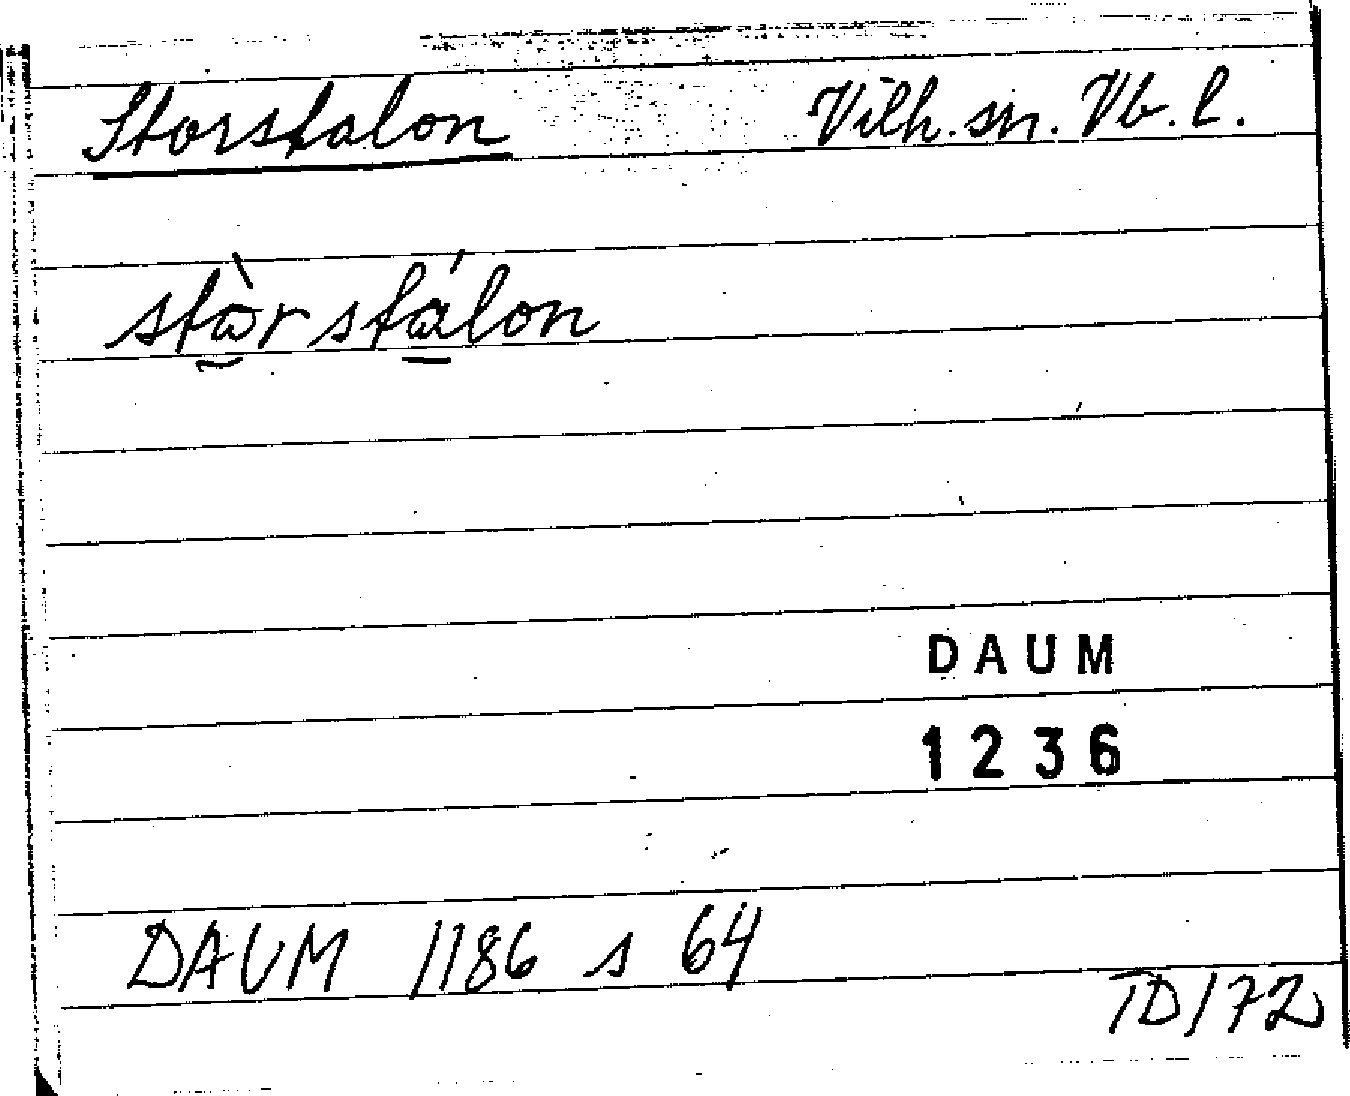 Storstalon Vilh. sn. Vb. l.
stòr stálon
DAUM
1236
DAUM 1186 s 64
TD/72